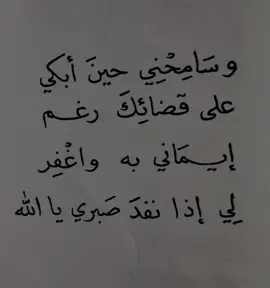 وسَامِحْنِي حينَ أبكي
على قضائِكَ رغم
إيـمَاني به واغْفِر
لِي إذا نفدَ صَبري يا الله